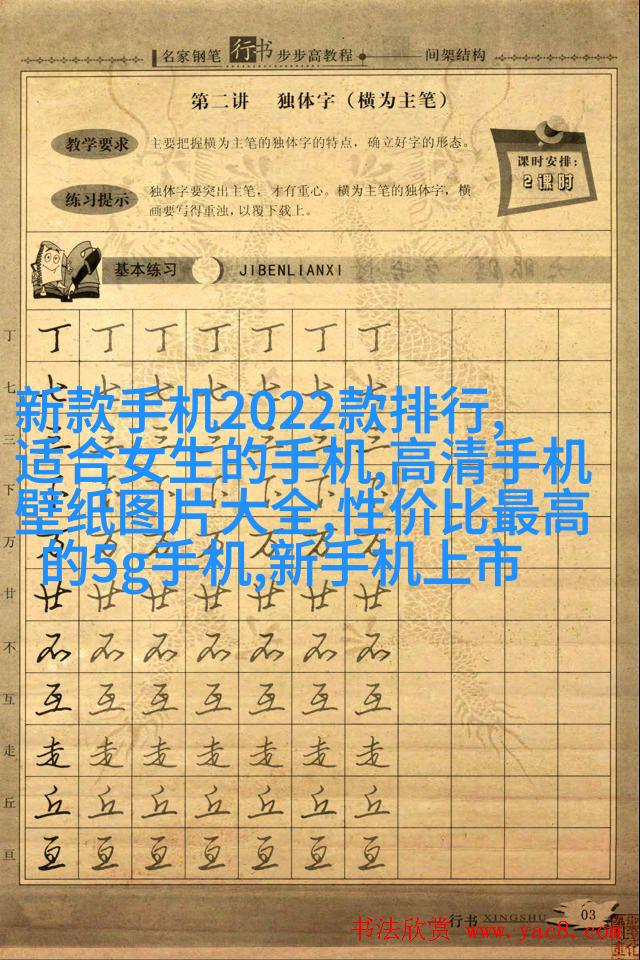 名家钢笔行书步步高教程 间架结构
第二讲 独体字（横为主笔）
教学要求 主要把握横为主笔的独体字的特点，确立好字的形态。
课时安排：
2课时
练习提示 独体字要突出主笔，才有重心。横为主笔的独体字，横
画要写得重浊，以覆下载上。
基本练习 JIBENLIANXI
丁 丁 丁 丁 丁 丁 丁 丁
七 七 七 七 七 七 七 七
新款手机2022款排行,
三 三 三 三 三 三 三 三
适合女生的手机,高清手机
下 下 下 下 下 下 下 下
壁纸图片大全,性价比最高
万 万 万 万 万 万 万 万
的5g手机,新手机上市
廿 廿 廿 廿 廿 廿 廿 廿
不 不 不 不 不 不 不 不
互 互 互 互 互 互 互 互
走 走 走 走 走 走 走 走
丘 丘 丘 丘 丘 丘 丘 丘
亘 亘 亘 亘 亘 亘 亘 亘
行书 XINGSHU 03
书法欣赏 www.yac8.com